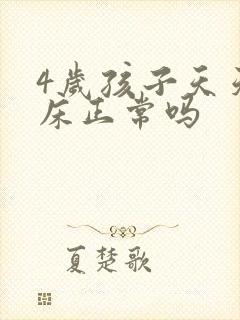 4歲孩子天天
床正常吗
夏楚歌